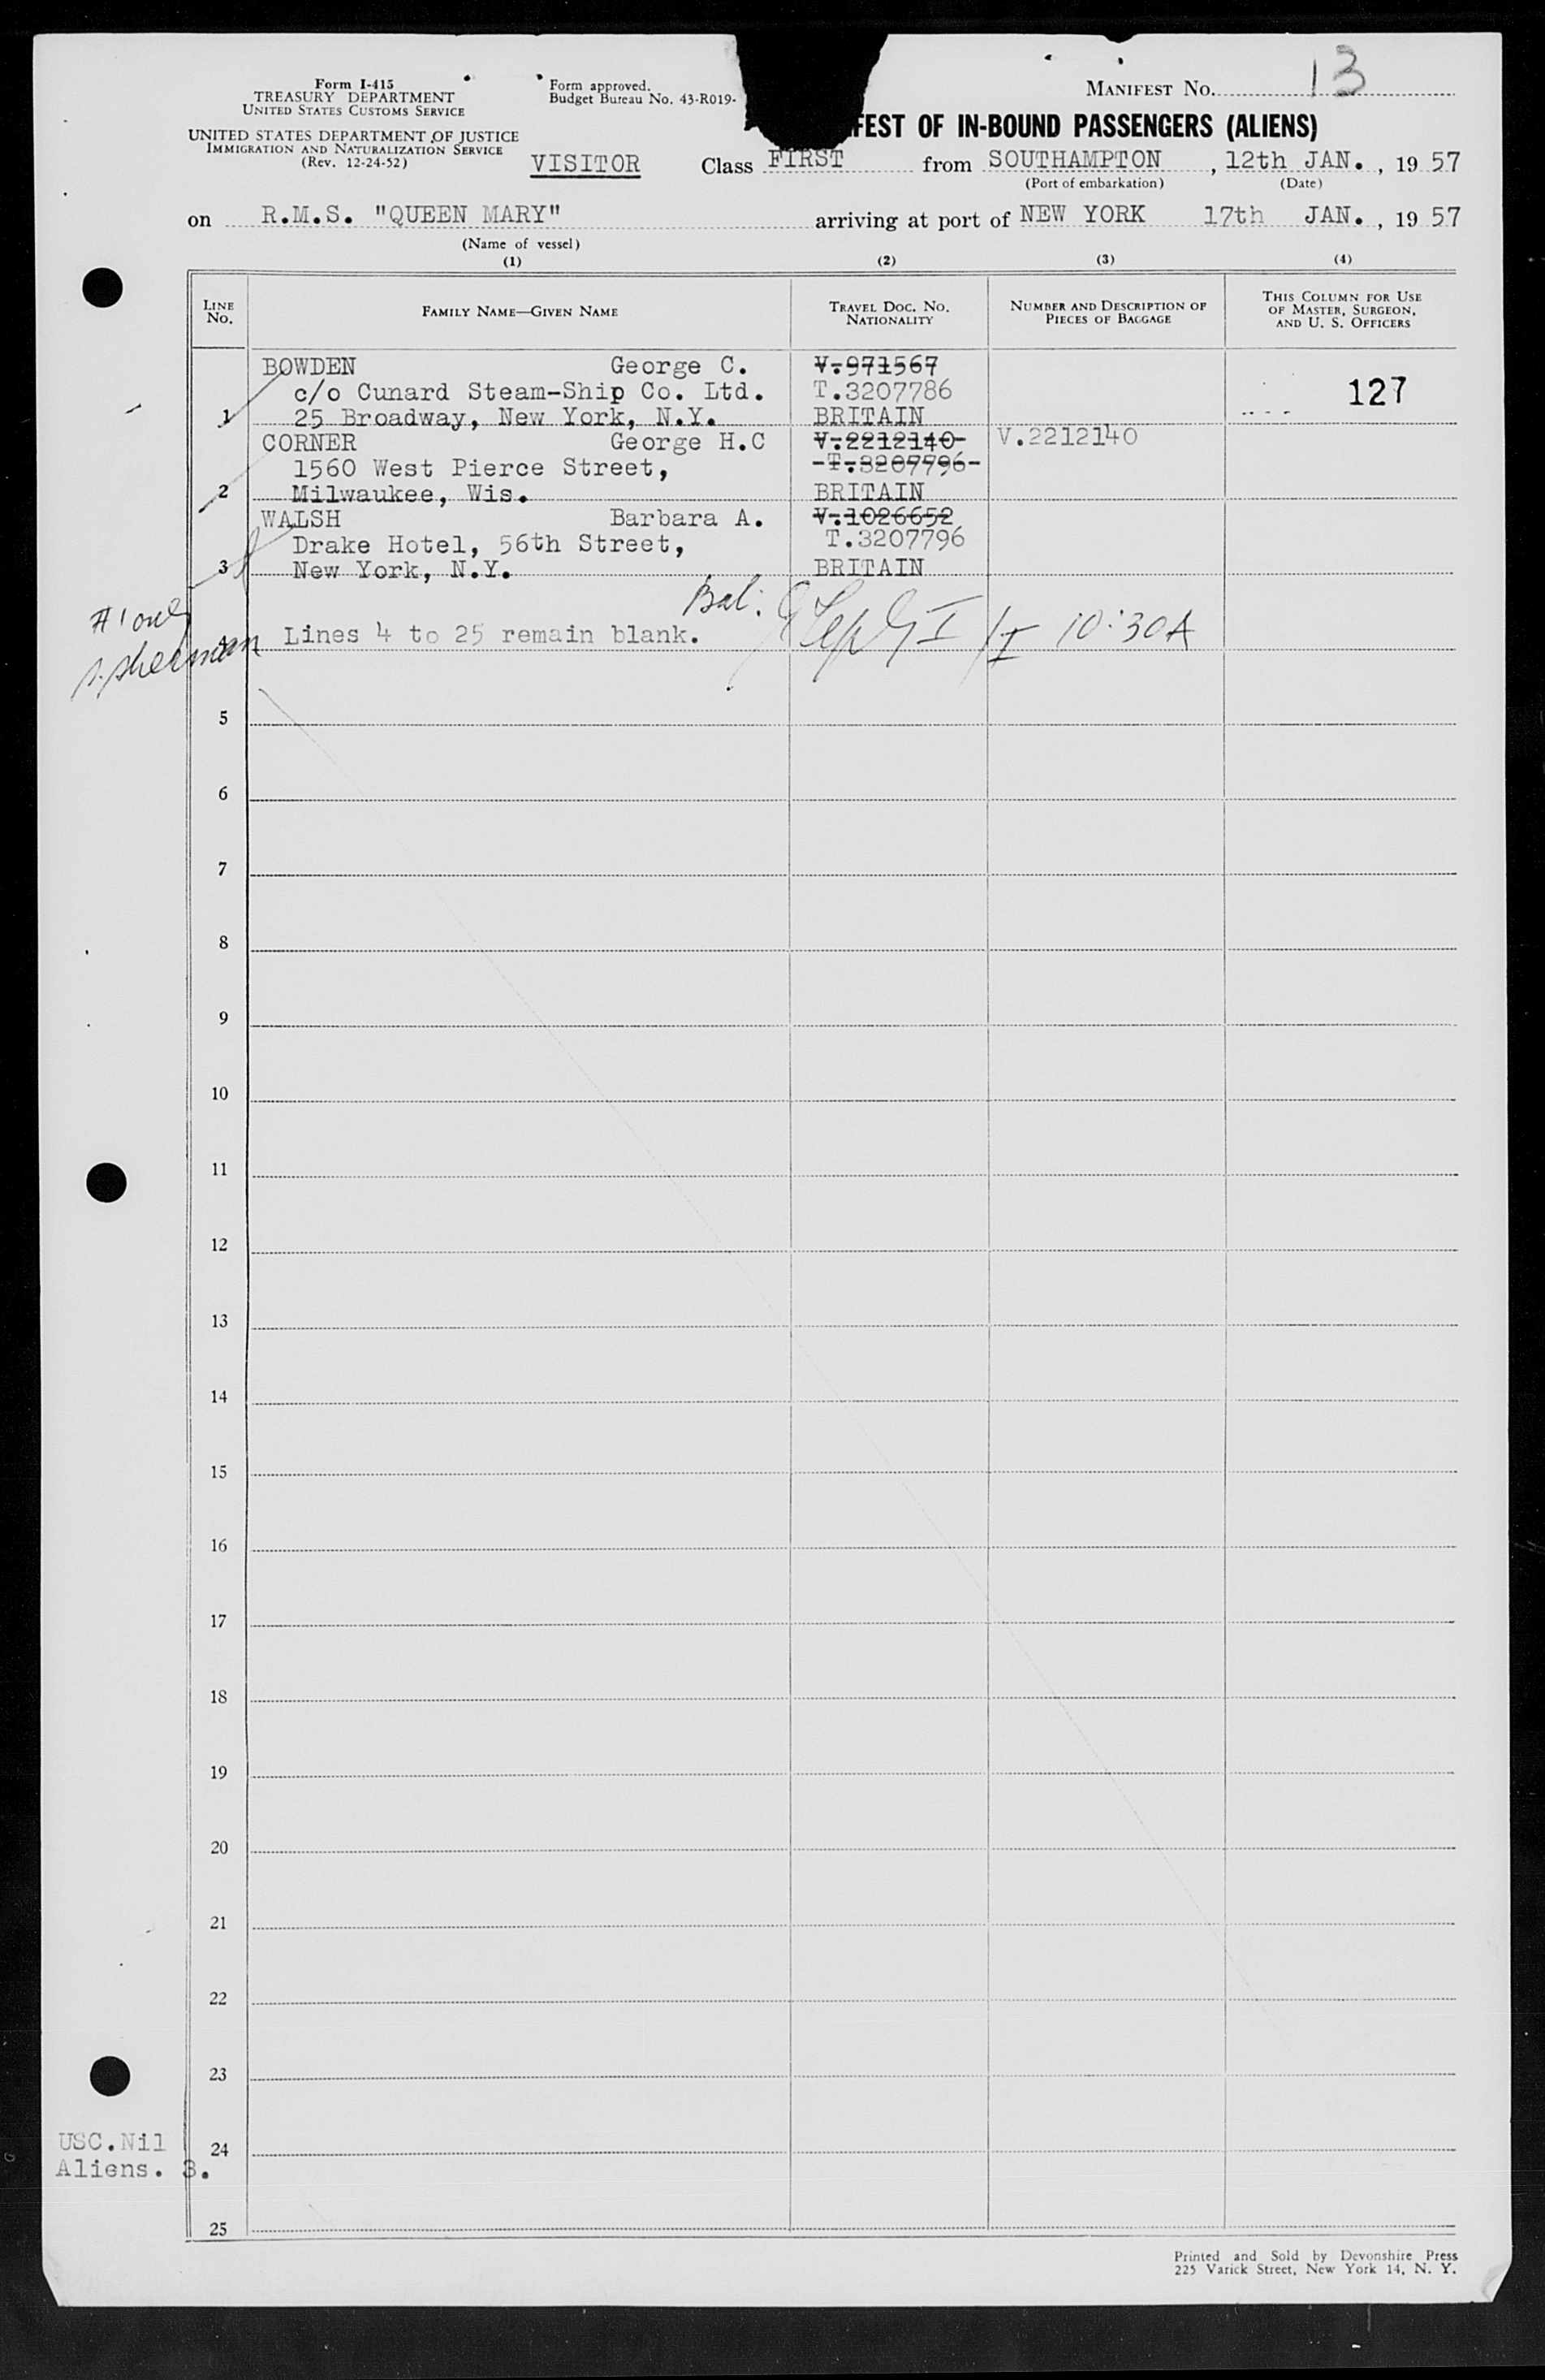 Form I-415
TREASURY DEPARTMENT
UNITED STATES CUSTOMS SERVICE
UNITED STATES DEPARTMENT OF JUSTICE
IMMIGRATION AND NATURALIZATION SERVICE
(Rev. 12-24-52)
Form approved.
Budget Bureau No. 43-R019-
MANIFEST No. 13
FEST OF IN-BOUND PASSENGERS (ALIENS)
VISITOR Class FIRST from SOUTHAMPTON, 12th JAN., 19 57
(Port of embarkation) (Date)
on R.M.S. "QUEEN MARY" arriving at port of NEW YORK 17th JAN., 19 57
(Name of vessel)
(1) (2) (3) (4)
LINE No. FAMILY NAME—GIVEN NAME TRAVEL DOC. NO. NATIONALITY NUMBER AND DESCRIPTION OF PIECES OF BAGGAGE THIS COLUMN FOR USE OF MASTER, SURGEON, AND U. S. OFFICERS
BOWDEN George C. V.971567
c/o Cunard Steam-Ship Co. Ltd. T.3207786 127
1 25 Broadway, New York, N.Y. BRITAIN
CORNER George H.C V.2212140- V.2212140
1560 West Pierce Street, -T.3207796-
2 Milwaukee, Wis. BRITAIN
WALSH Barbara A. V.1026652
Drake Hotel, 56th Street, T.3207796
3 New York, N.Y. BRITAIN
#1 only
Bal. 10:30A
Lines 4 to 25 remain blank.
S. Sherman
5
6
7
8
9
10
11
12
13
14
15
16
17
18
19
20
21
22
23
USC.Nil
24
Aliens. 3.
25
Printed and Sold by Devonshire Press
225 Varick Street, New York 14, N. Y.